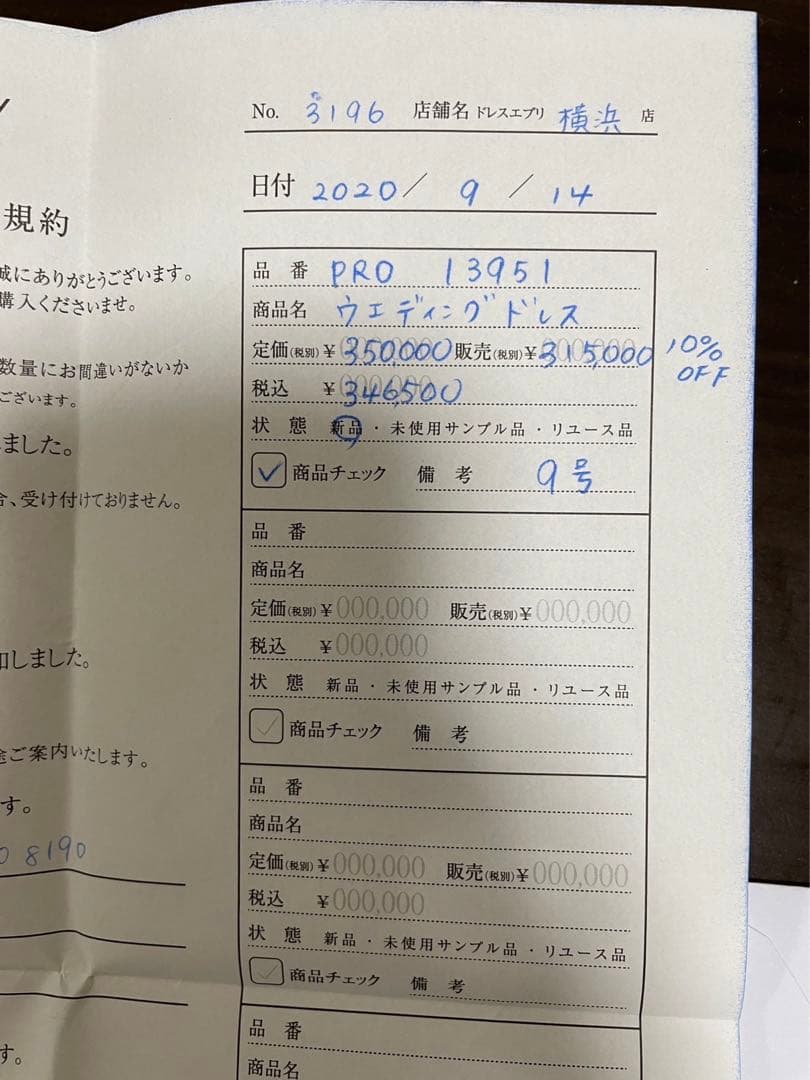 No. 3196 店舗名 ドレスエブリ 横浜 店
日付 2020 / 9 / 14
規約
誠にありがとうございます。
購入くださいませ。
数量にお間違いがないか
ございます。
ました。
合、受け付けておりません。
知しました。
途ご案内いたします。
す。
0 8190
す。
品 番 PRO 13951
商品名 ウエディングドレス
定価(税別) ¥350,000 販売(税別) ¥315,000 10% OFF
税込 ¥346,500
状 態 新品 ・ 未使用サンプル品 ・ リユース品
商品チェック 備 考 9号
品 番
商品名
定価(税別) ¥000,000 販売(税別) ¥000,000
税込 ¥000,000
状 態 新品 ・ 未使用サンプル品 ・ リユース品
商品チェック 備 考
品 番
商品名
定価(税別) ¥000,000 販売(税別) ¥000,000
税込 ¥000,000
状 態 新品 ・ 未使用サンプル品 ・ リユース品
商品チェック 備 考
品 番
商品名